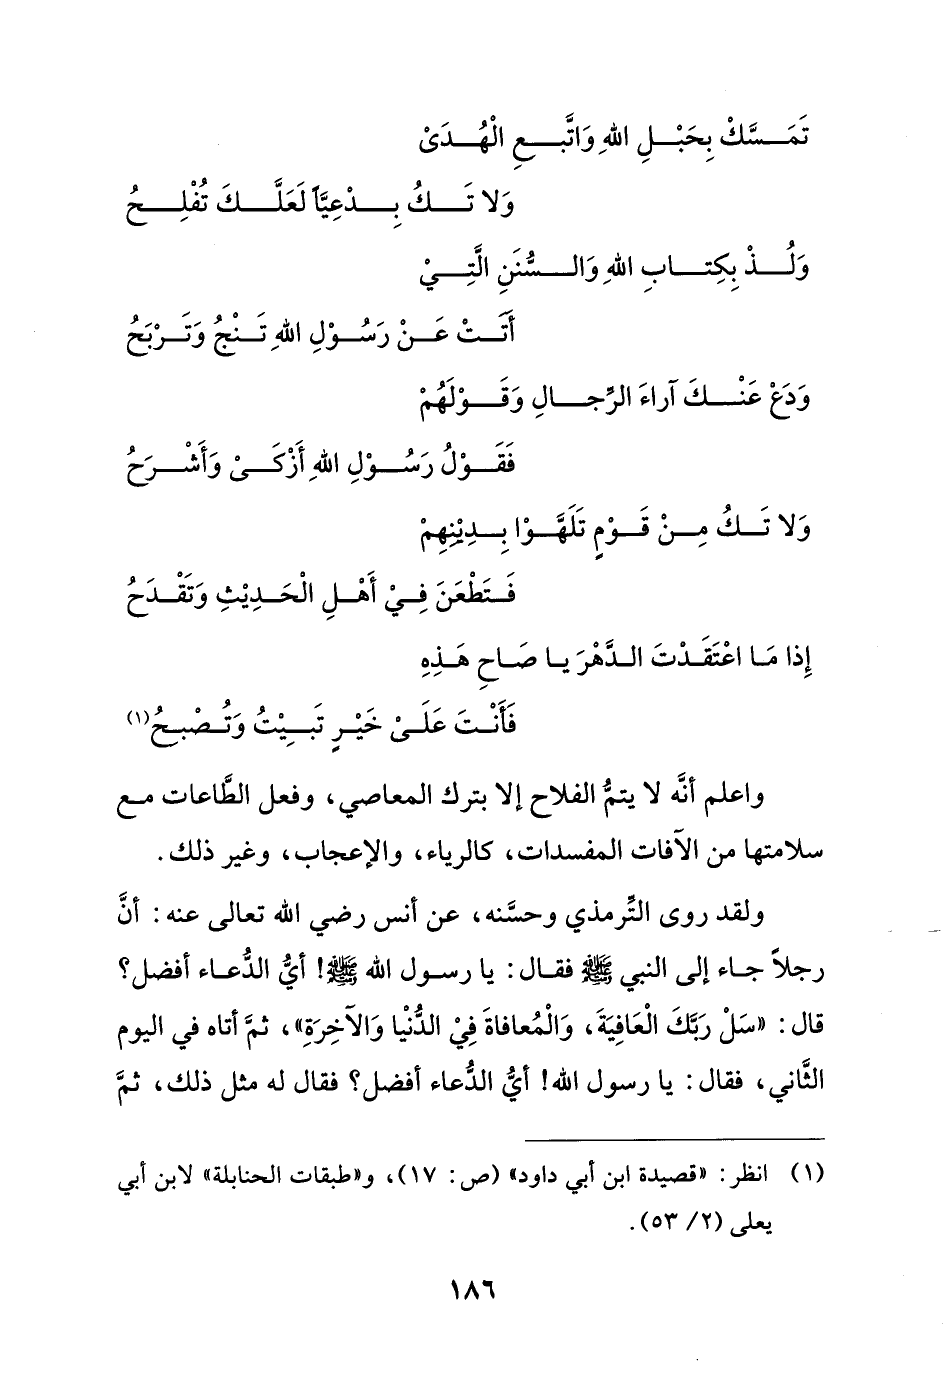 تَمَسَّكْ بِحَبْلِ اللهِ وَاتَّبِعِ الْهُدَىْ
وَلا تَكُ بِدْعِيًّا لَعَلَّكَ تُفْلِحُ
وَلُذْ بِكِتابِ اللهِ وَالسُّنَنِ الَّتِيْ
أَتَتْ عَنْ رَسُوْلِ اللهِ تَنْجُ وَتَرْبَحُ
وَدَعْ عَنْكَ آراءَ الرِّجالِ وَقَوْلَهُمْ
فَقَوْلُ رَسُوْلِ اللهِ أَزْكَىْ وَأَشْرَحُ
وَلا تَكُ مِنْ قَوْمٍ تَلَهَّوْا بِدِيْنِهِمْ
فَتَطْعَنَ فِيْ أَهْلِ الْحَدِيْثِ وَتَقْدَحُ
إِذا مَا اعْتَقَدْتَ الدَّهْرَ يا صَاحِ هَذِهِ
فَأَنْتَ عَلَىْ خَيْرٍ تَبِيْتُ وَتُصْبِحُ(١)
واعلم أنَّه لا يتمُّ الفلاح إلا بترك المعاصي، وفعل الطَّاعات مع
سلامتها من الآفات المفسدات، كالرياء، والإعجاب، وغير ذلك.
ولقد روى التِّرمذي وحسَّنه، عن أنس رضي الله تعالى عنه: أنَّ
رجلاً جاء إلى النبي ﷺ فقال: يا رسول الله ﷺ! أيُّ الدُّعاء أفضل؟
قال: «سَلْ رَبَّكَ الْعَافِيَةَ، وَالْمُعافاةَ فِيْ الدُّنْيا وَالآخِرَةِ»، ثمَّ أتاه في اليوم
الثَّاني، فقال: يا رسول الله! أيُّ الدُّعاء أفضل؟ فقال له مثل ذلك، ثمَّ
(١) انظر: «قصيدة ابن أبي داود» (ص: ١٧)، و«طبقات الحنابلة» لابن أبي
يعلى (٢/ ٥٣).
١٨٦